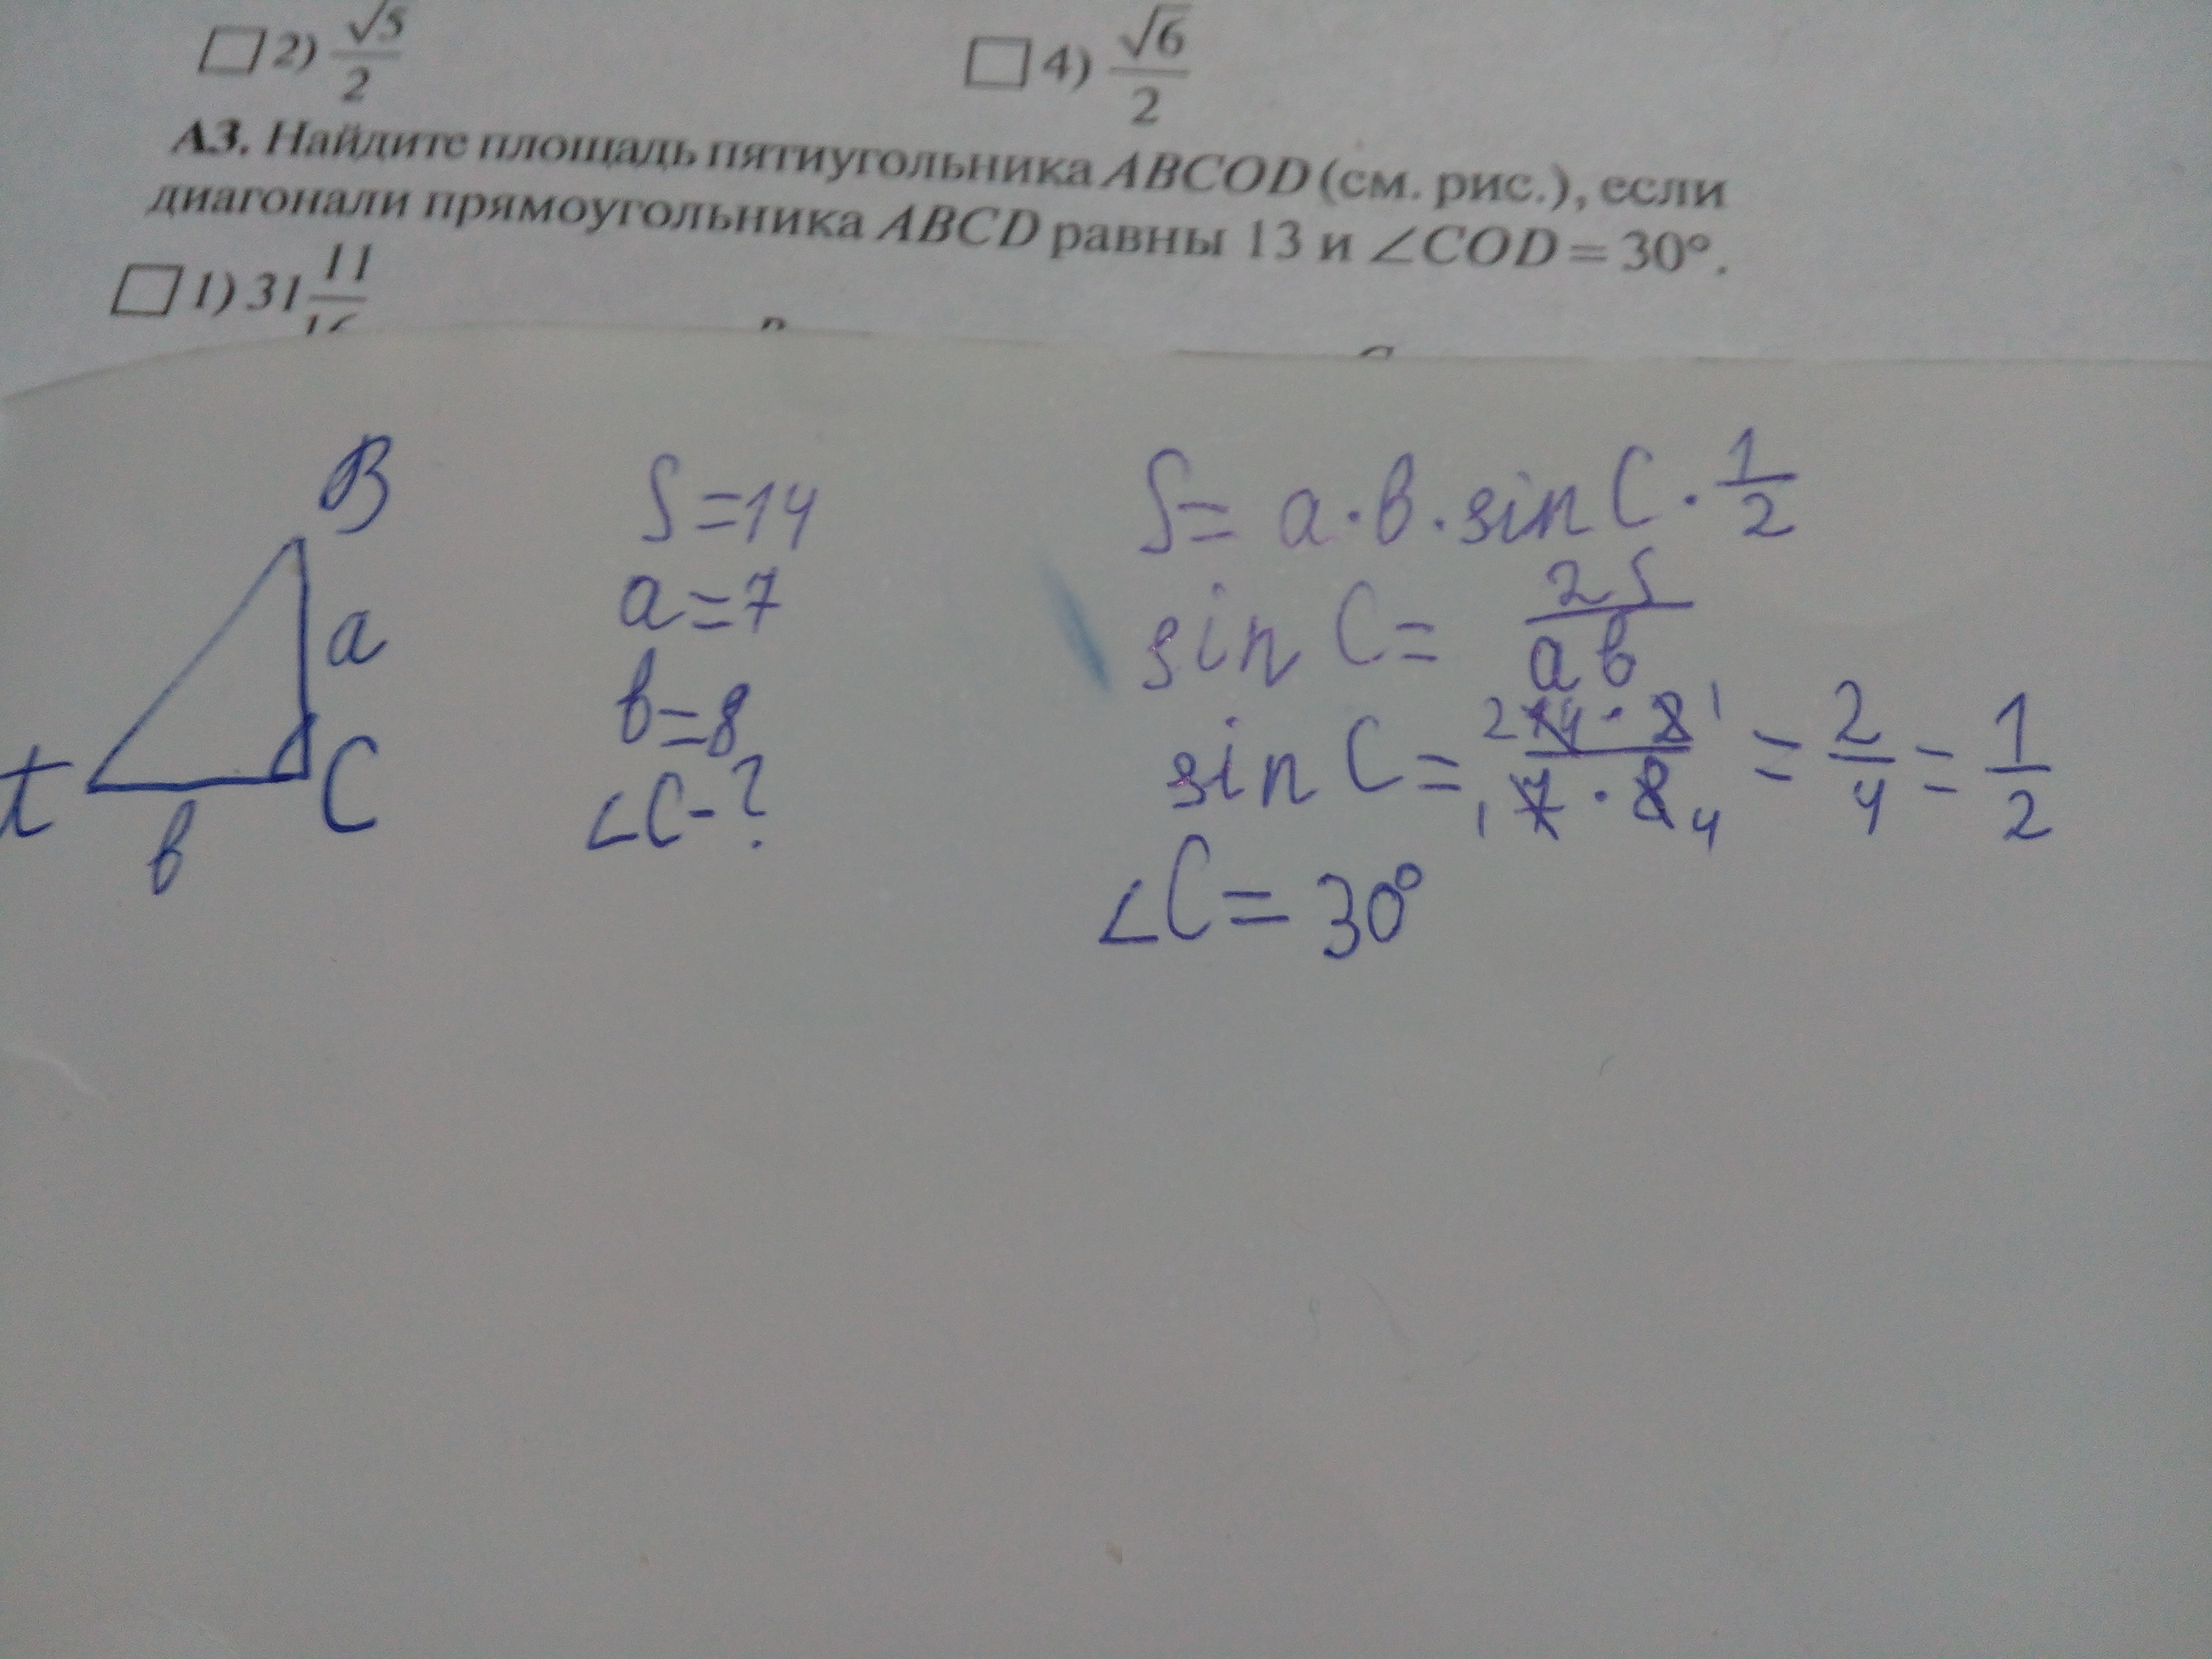 2) √5/2
4) √6/2
А3. Найдите площадь пятиугольника ABCOD (см. рис.), если
диагонали прямоугольника ABCD равны 13 и ∠COD = 30°.
1) 31 11/16
B
a
t
C
в
S=14
a=7
в=8
∠C-?
S= a·в·sin C · 1/2
sin C= 2S/aв
sin C= 2 14 · 2 1 / 1 7 · 8 4 = 2/4 = 1/2
∠C= 30°